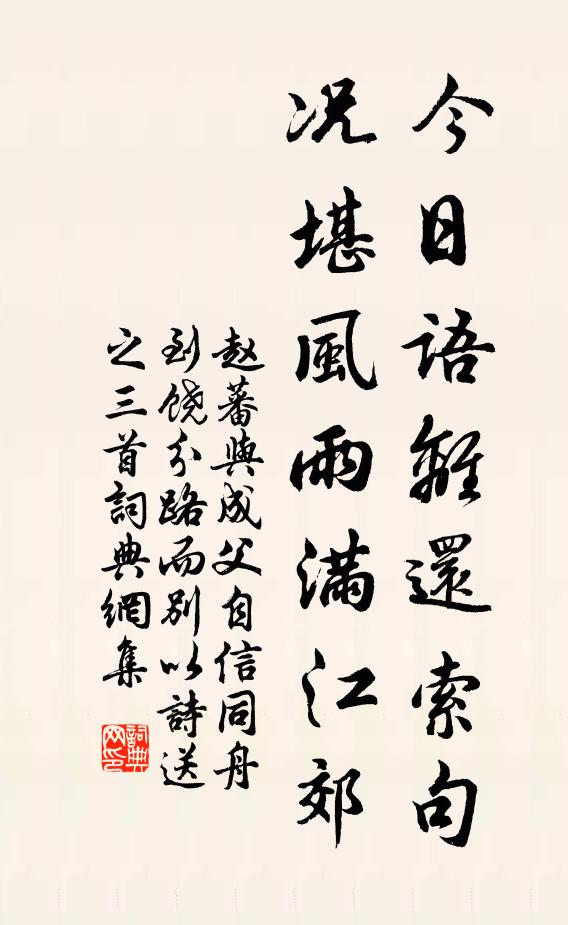 今日語離還索句
况堪風雨滿江郊
赵蕃與成父自信同舟
到饶分路而别以詩送
之三首詞典網集
詞典网印